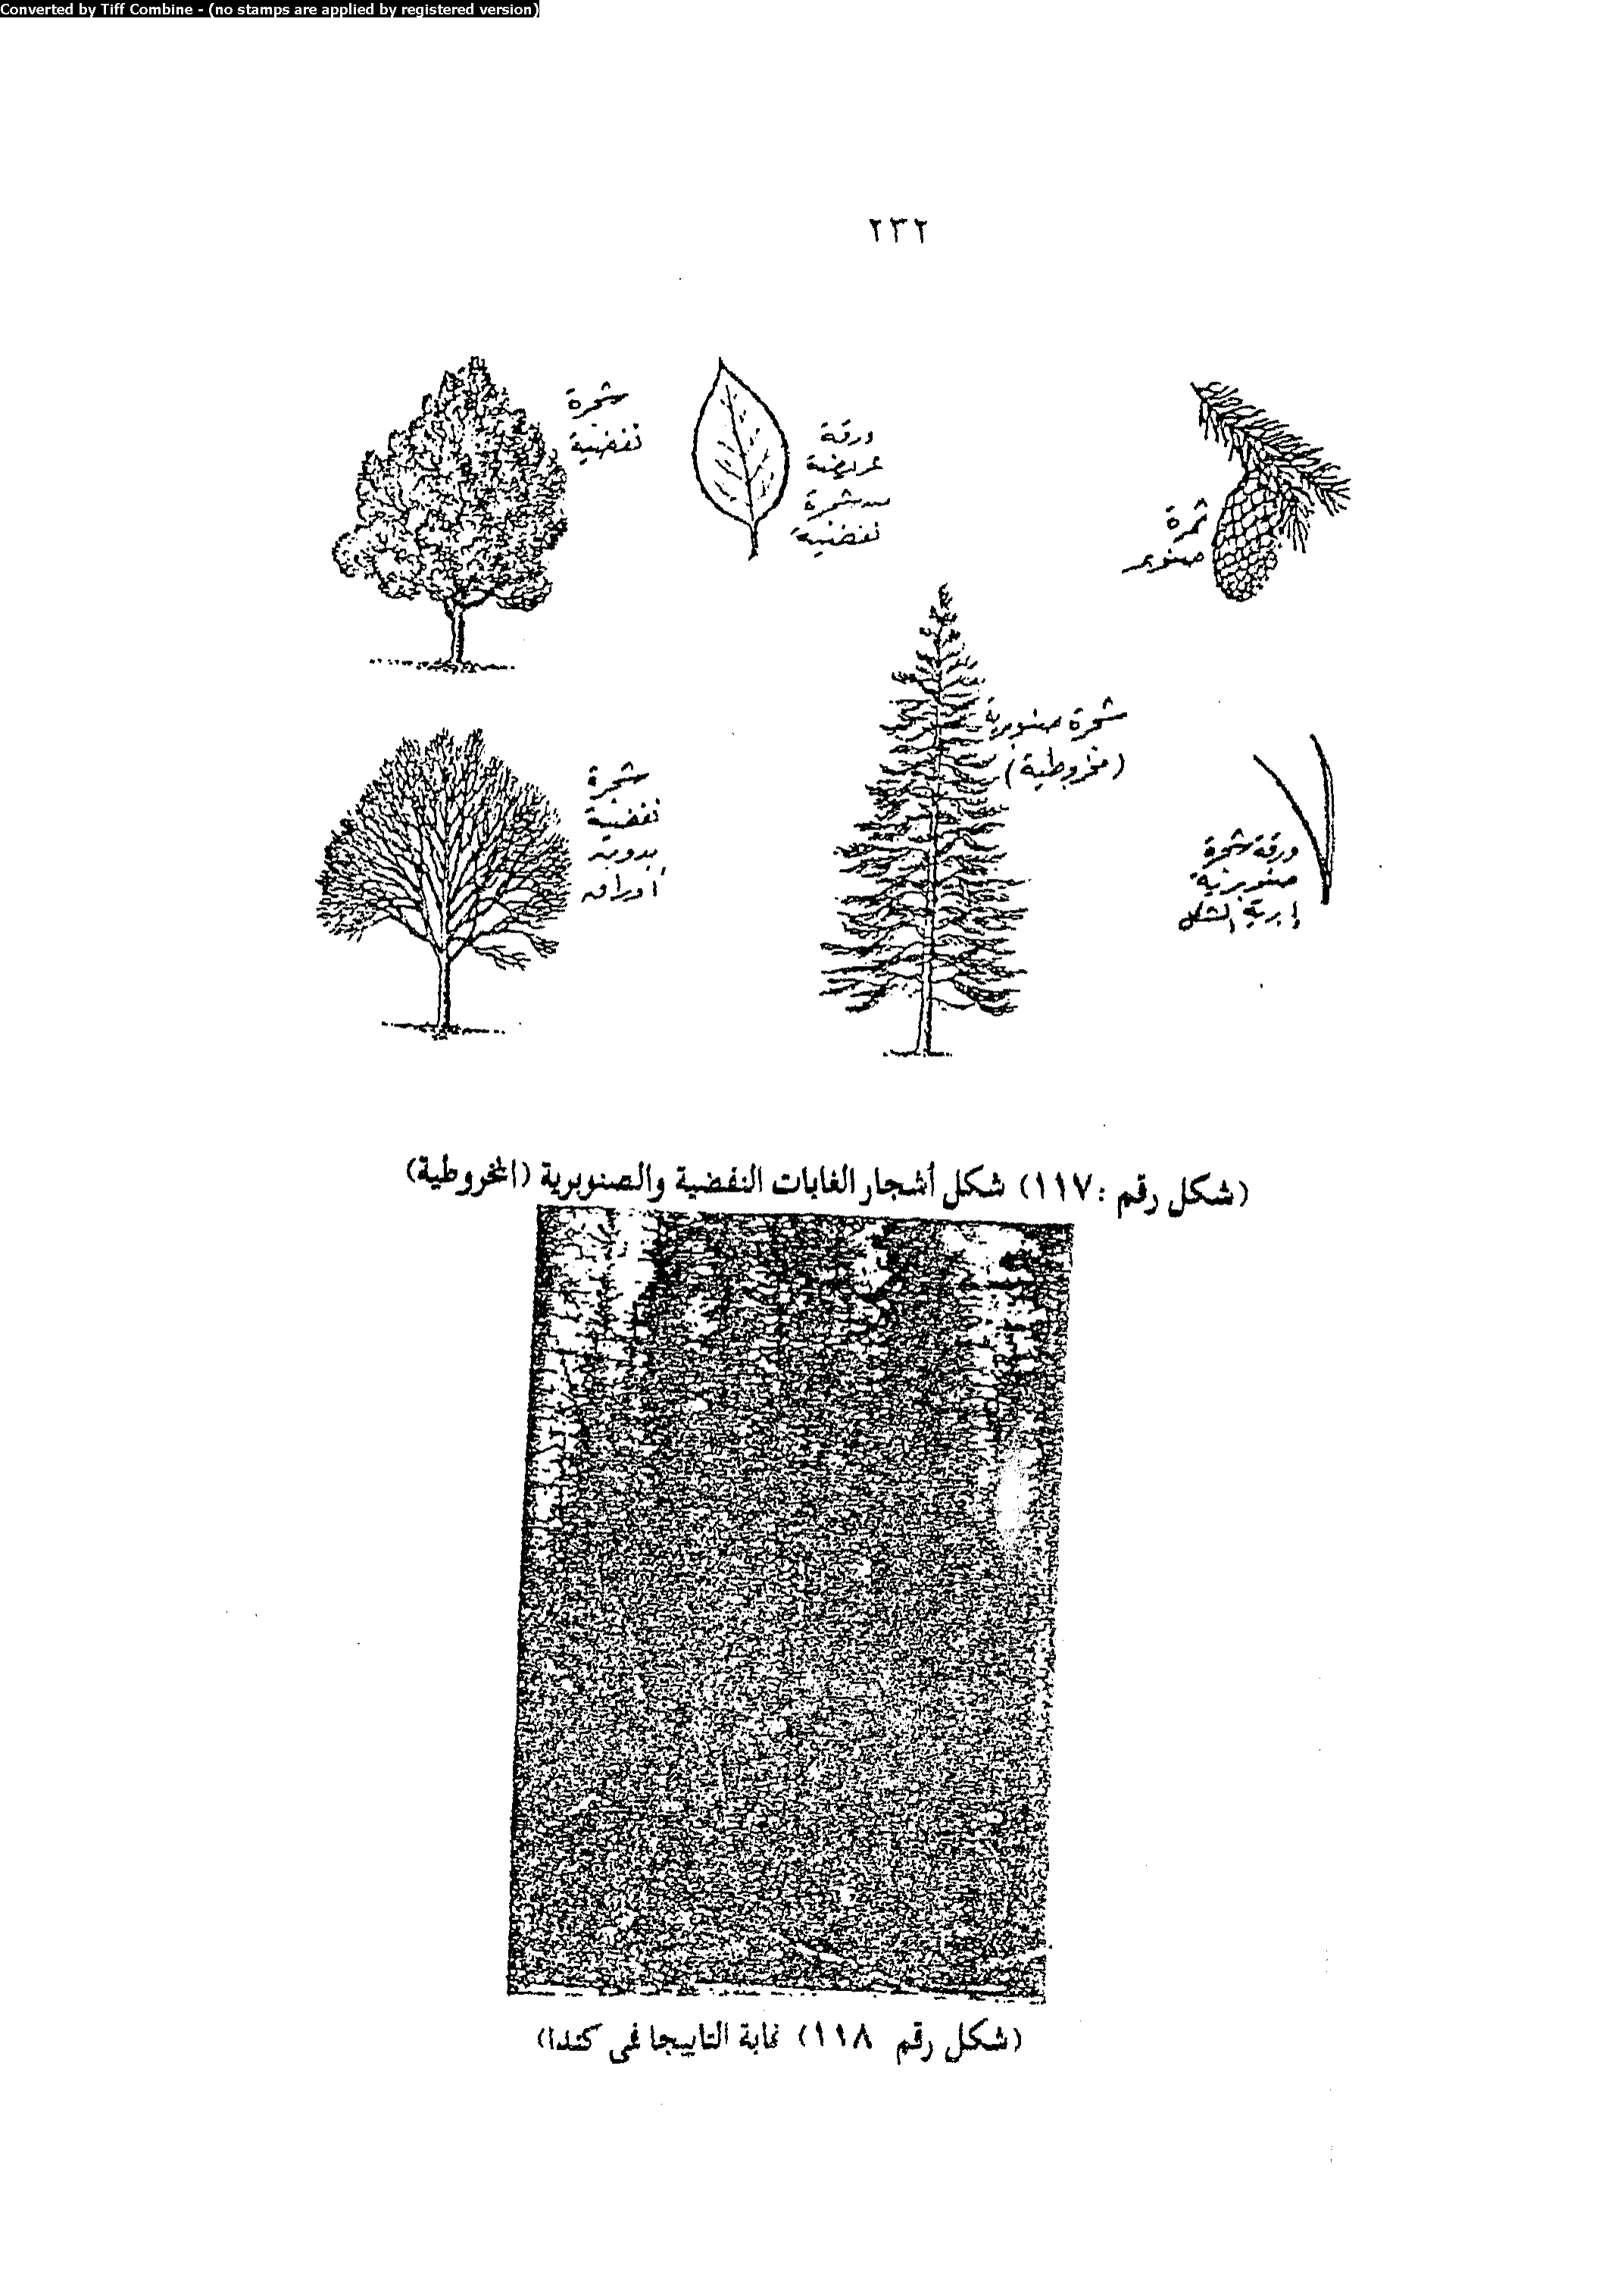 Converted by Tiff Combine - (no stamps are applied by registered version)
٢٣٢
شجرة
نفضية
ورقة
عريضة
لشجرة
نفضية
ثمرة
صنوبر
شجرة صنوبرية
(مخروطية)
شجرة
نفضية
بدون
أوراق
ورقة شجرة
صنوبرية
إبرية الشكل
(شكل رقم : ١١٧) شكل أشجار الغابات النفضية والصنوبرية (المخروطية)
(شكل رقم ١١٨) غابة التاييجا فى كندا)